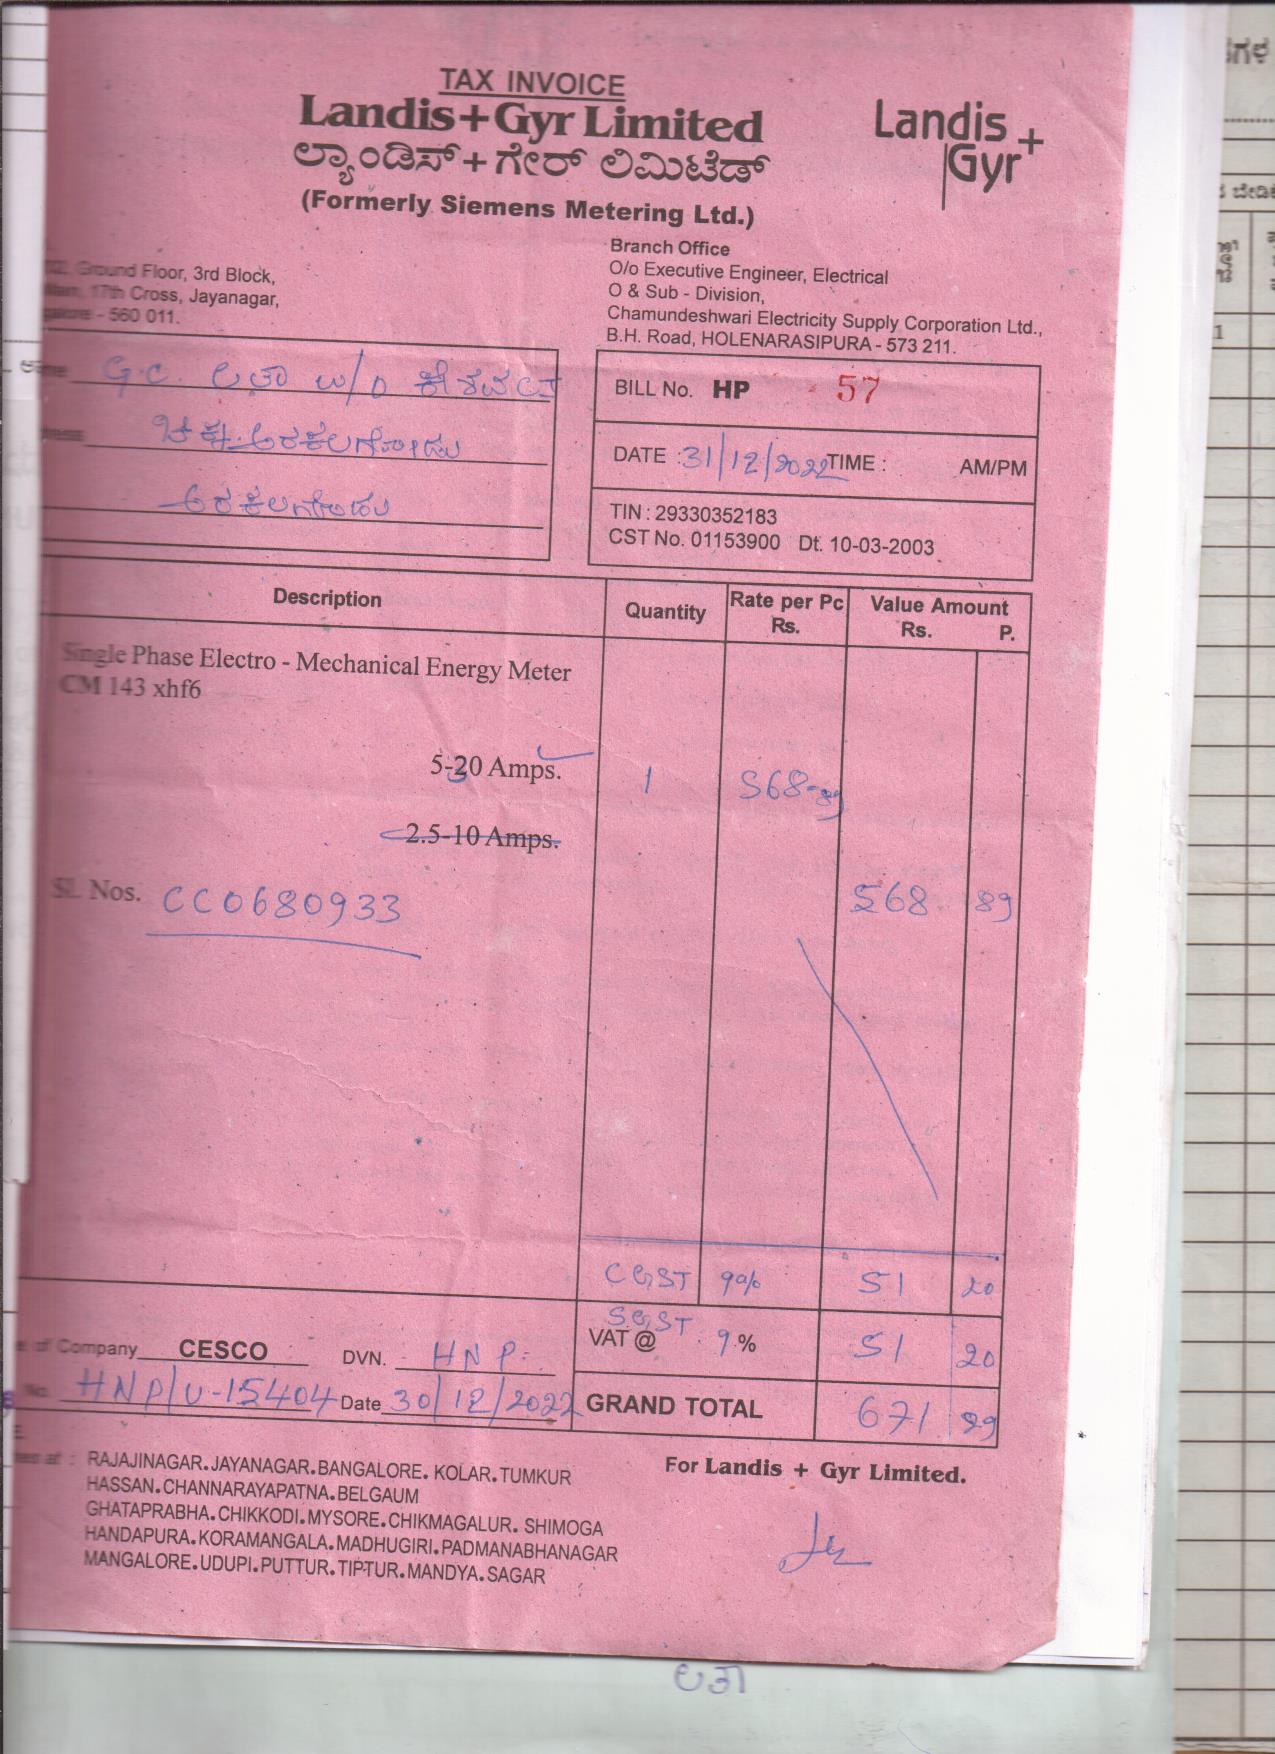 TAX INVOICE
Landis+Gyr Limited
ಲ್ಯಾಂಡಿಸ್+ಗೇರ್ ಲಿಮಿಟೆಡ್
(Formerly Siemens Metering Ltd.)
Landis+
Gyr
Ground Floor, 3rd Block,
17th Cross, Jayanagar,
- 560 011.
Branch Office
O/o Executive Engineer, Electrical
O & Sub - Division,
Chamundeshwari Electricity Supply Corporation Ltd.,
B.H. Road, HOLENARASIPURA - 573 211.
G.C. ಲತಾ W/O
ಅರಕಲಗೂಡು
BILL No. HP 57
DATE : 31/12/2022 TIME : AM/PM
TIN : 29330352183
CST No. 01153900 Dt. 10-03-2003
Description Quantity Rate per Pc Rs. Value Amount Rs. P.
Single Phase Electro - Mechanical Energy Meter
CM 143 xhf6
5-20 Amps. 1 568-89
2.5-10 Amps.
Sl. Nos. CC0680933 568 89
CGST 9% 51 20
SGST
VAT @ 9 % 51 20
of Company CESCO DVN. HNP
No. HNP/U-15404 Date 30/12/2022
GRAND TOTAL 671 29
at : RAJAJINAGAR.JAYANAGAR.BANGALORE. KOLAR.TUMKUR
HASSAN.CHANNARAYAPATNA.BELGAUM
GHATAPRABHA.CHIKKODI.MYSORE.CHIKMAGALUR. SHIMOGA
HANDAPURA.KORAMANGALA.MADHUGIRI.PADMANABHANAGAR
MANGALORE.UDUPI.PUTTUR.TIPTUR.MANDYA.SAGAR
For Landis + Gyr Limited.
ಲತಾ